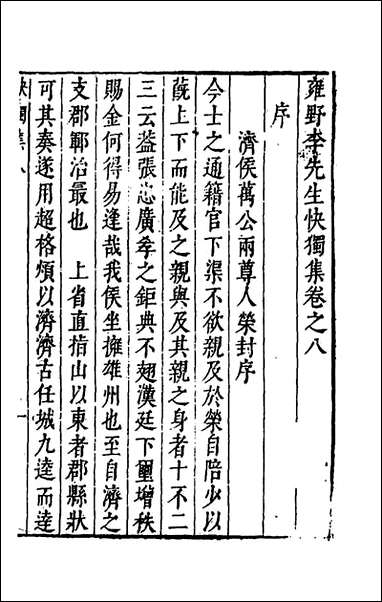 雍野李先生快獨集卷之八
序
濟侯萬公兩尊人榮封序
今士之通籍官下渠不欲親及於榮自陪少以
既上下而能及之親與及其親之身者十不二
三云葢張忠廣孝之鉅典不翅漢廷下璽增秩
賜金何得易逢哉我侯坐擁雄州也至自濟之
支郡鄆治最也　上省直指山以東者郡縣狀
可其奏遂用超格煩以濟濟古任城九達而達
快獨集八